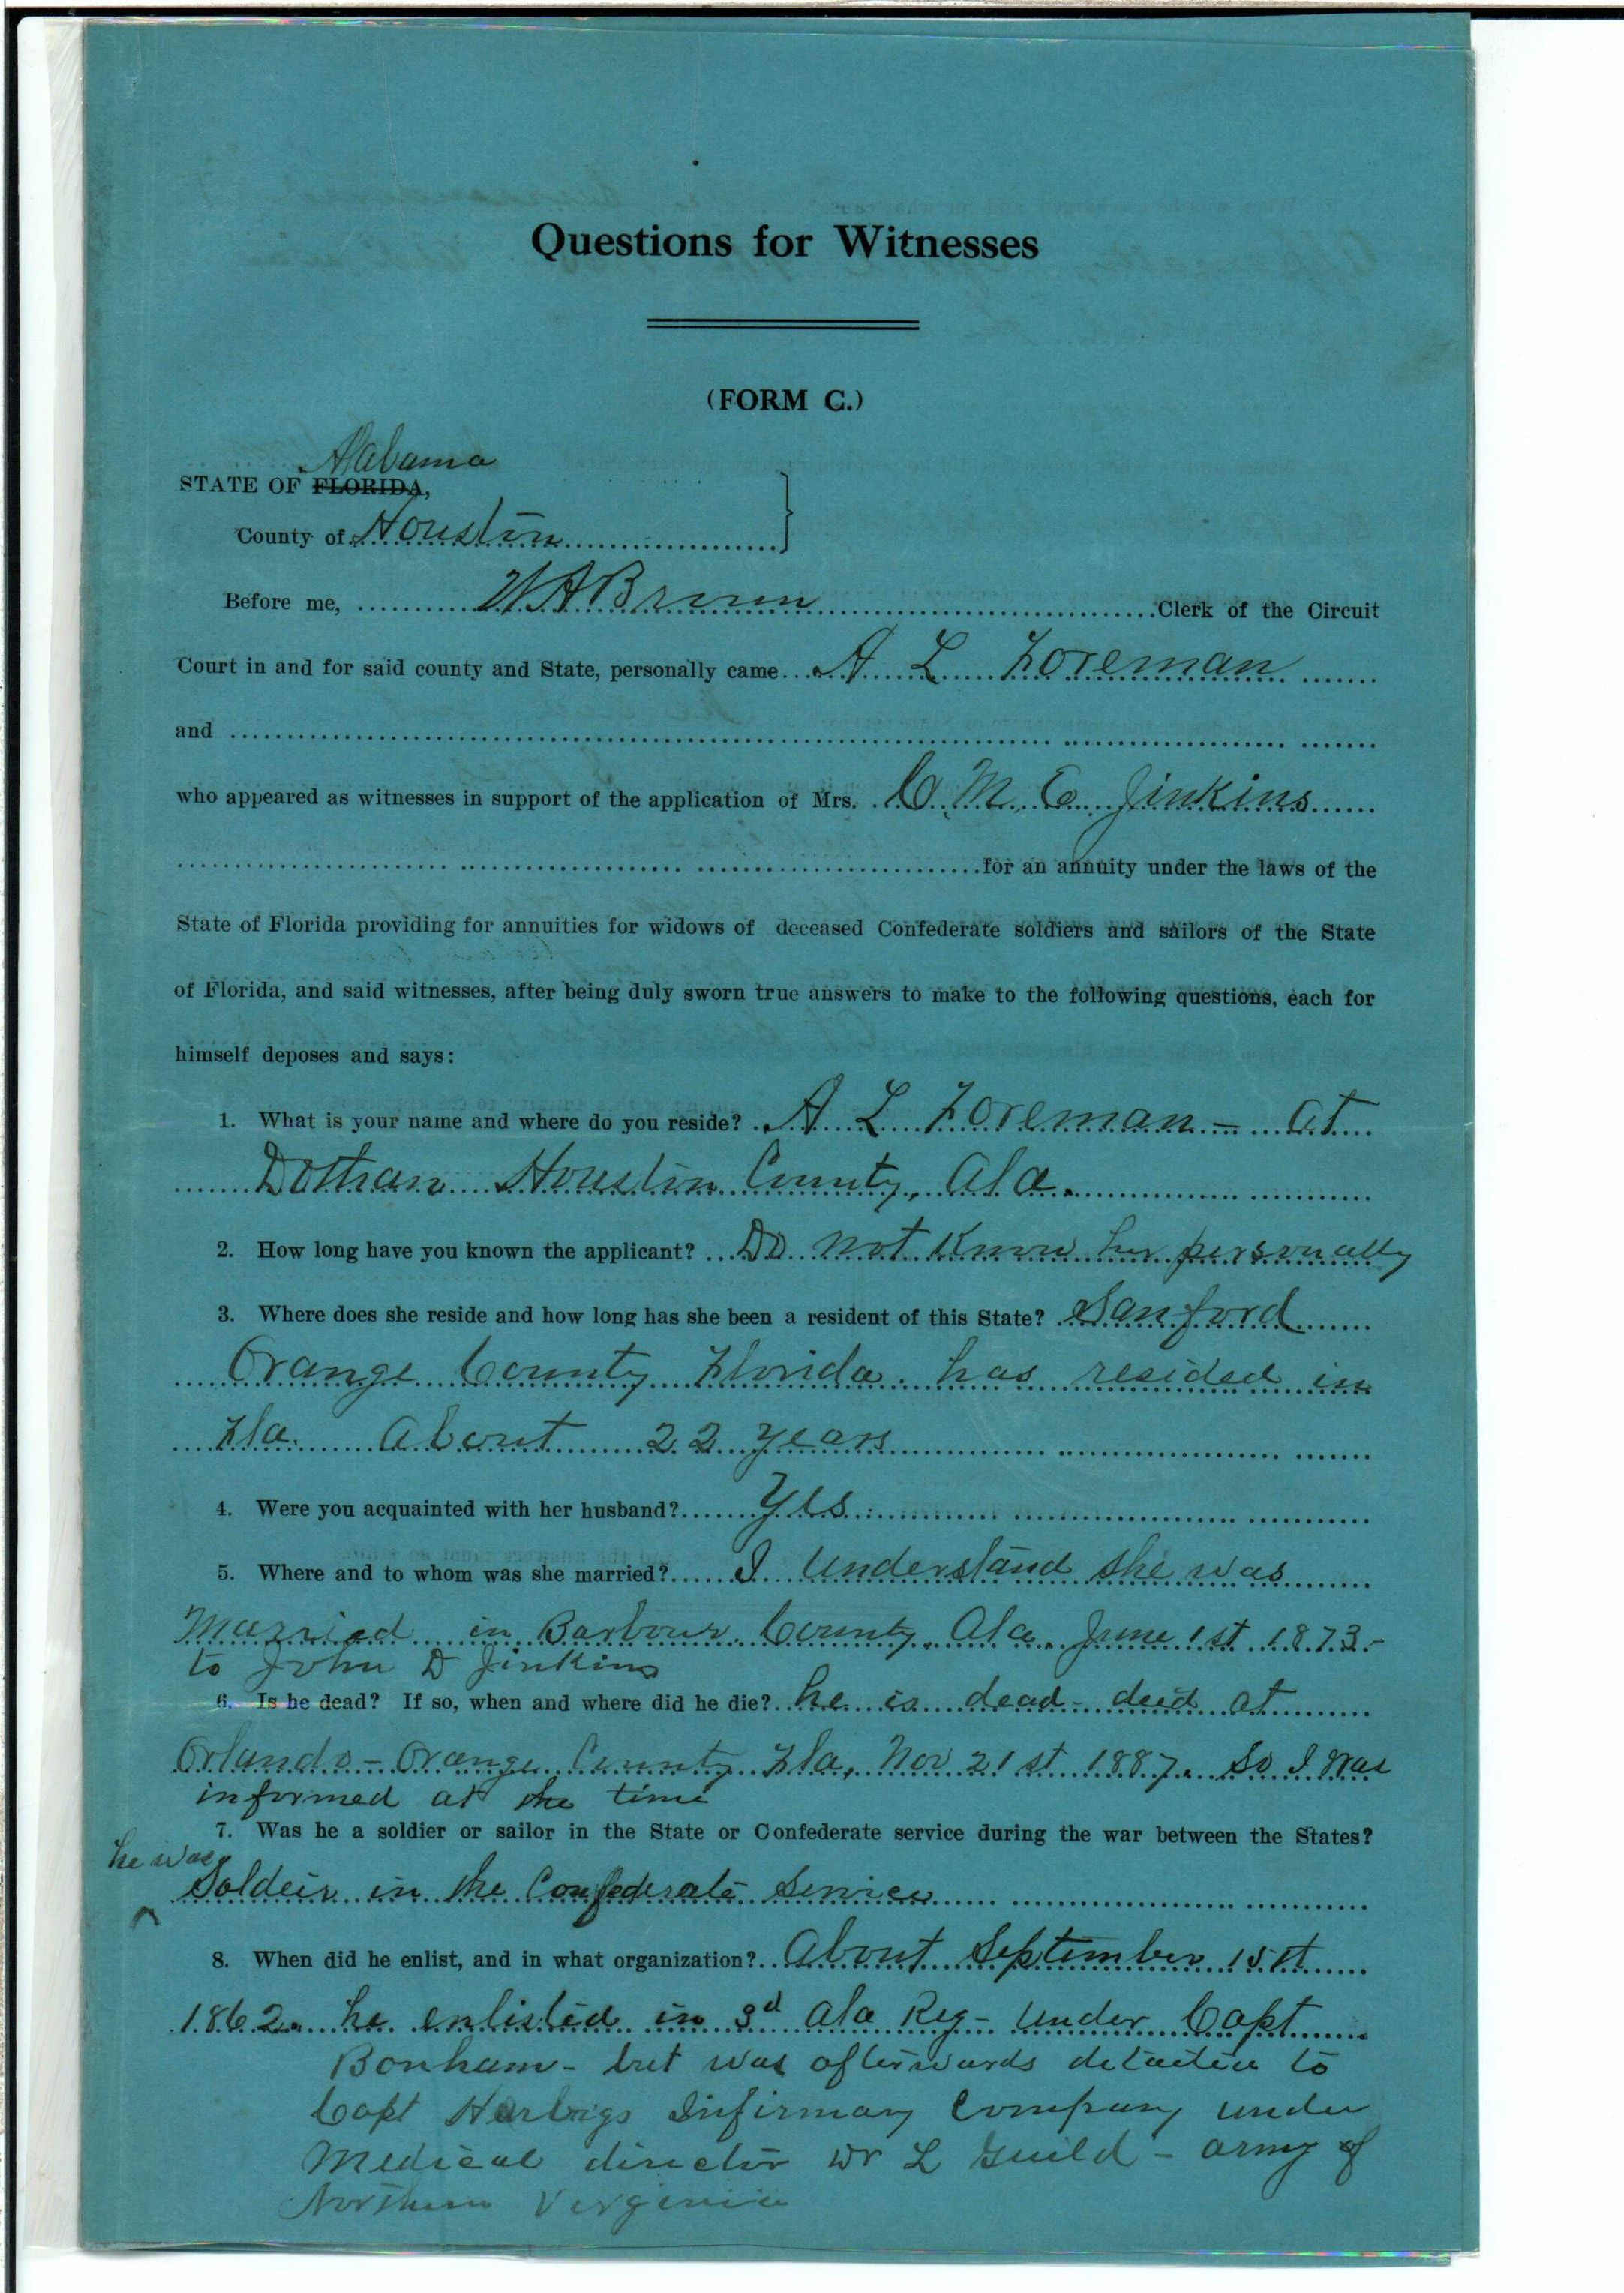 Questions for Witnesses
(FORM C.)
Alabama
STATE OF FLORIDA,
County of Houston
Before me, W A Brown Clerk of the Circuit
Court in and for said county and State, personally came A L Foreman
and
who appeared as witnesses in support of the application of Mrs. C M E Jinkins
for an annuity under the laws of the
State of Florida providing for annuities for widows of deceased Confederate soldiers and sailors of the State
of Florida, and said witnesses, after being duly sworn true answers to make to the following questions, each for
himself deposes and says:
1. What is your name and where do you reside? A L Foreman - at
Dothan Houston County, Ala.
2. How long have you known the applicant? Do not Know her personally
3. Where does she reside and how long has she been a resident of this State? Sanford
Orange County Florida. has resided in
Fla. About 22 years
4. Were you acquainted with her husband? Yes.
5. Where and to whom was she married? I understand she was
Married in Barbour County, Ala. June 1st 1873.-
to John D Jinkins
6. Is he dead? If so, when and where did he die? he is dead - deid at
Orlando - Orange County Fla, Nov 21st 1887. So I was
informed at the time
7. Was he a soldier or sailor in the State or Confederate service during the war between the States?
he was
Soldeir in the Confederate Service
8. When did he enlist, and in what organization? About September 15th
1862. he enlisted in 3d Ala Reg - under Capt
Bonham - but was afterwards detailed to
Capt Infirmary Company under
Medical director Dr L Guild - army of
Northern Virginia